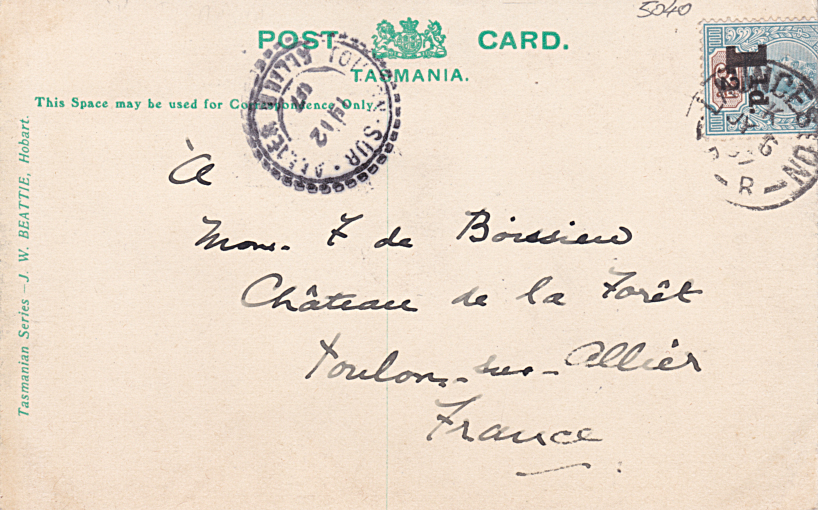 5040
POST CARD.
TASMANIA.
This Space may be used for Correspondence Only.
TOULON-SUR-ALLIER
ALLIER
14 12
Tasmanian Series – J. W. BEATTIE, Hobart.
1½d.
LAUNCESTON
6
R
à
Mons. F de Boissieu
Château de la Forêt
Toulon-sur-Allier
France